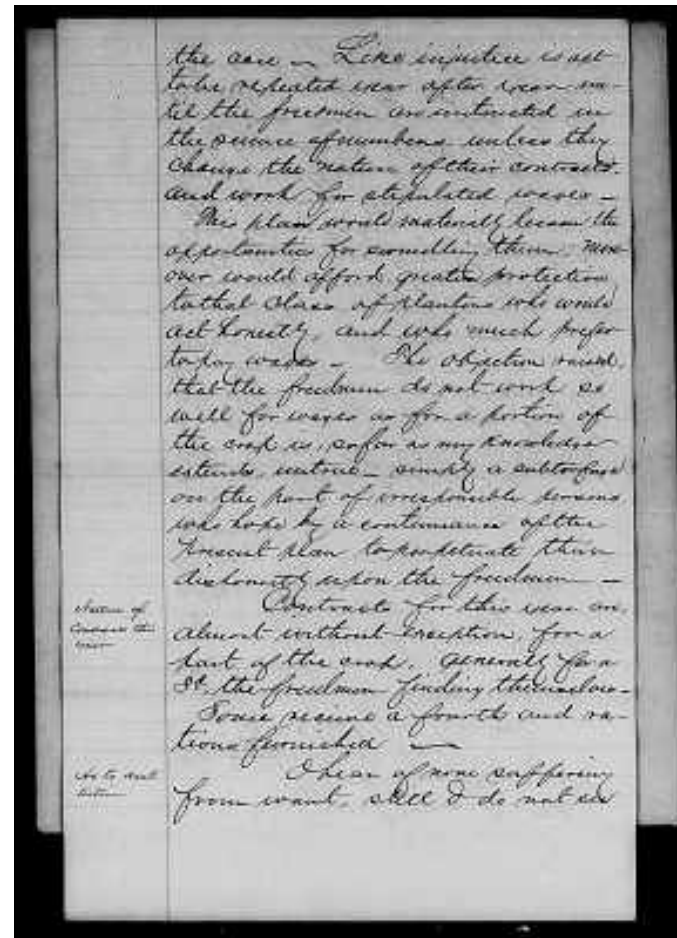 the case — Like injustice is apt
to be repeated year after year un-
til the freedmen are instructed in
the science of numbers unless they
change the nature of their contracts.
and work for stipulated wages —
This plan would materially lessen the
opportunities for swindling them, more-
over would afford greater protection
to that class of planters who would
act honestly, and who much prefer
to pay wages — The objection raised,
that the freedmen do not work so
well for wages as for a portion of
the crop is, so far as my knowledge
extends, untrue — simply a subterfuge
on the part of irresponsible persons
who hope by a continuance of the
present plan to perpetuate their
dishonesty upon the freedmen —
Nature of
Contracts this
year
Contracts for this year are,
almost without exception, for a
part of the crop, generally for a
3d. the freedmen finding themselves —
Some receive a fourth and ra-
tions furnished —
As to desti-
tution
I hear of none suffering
from want, still I do not see